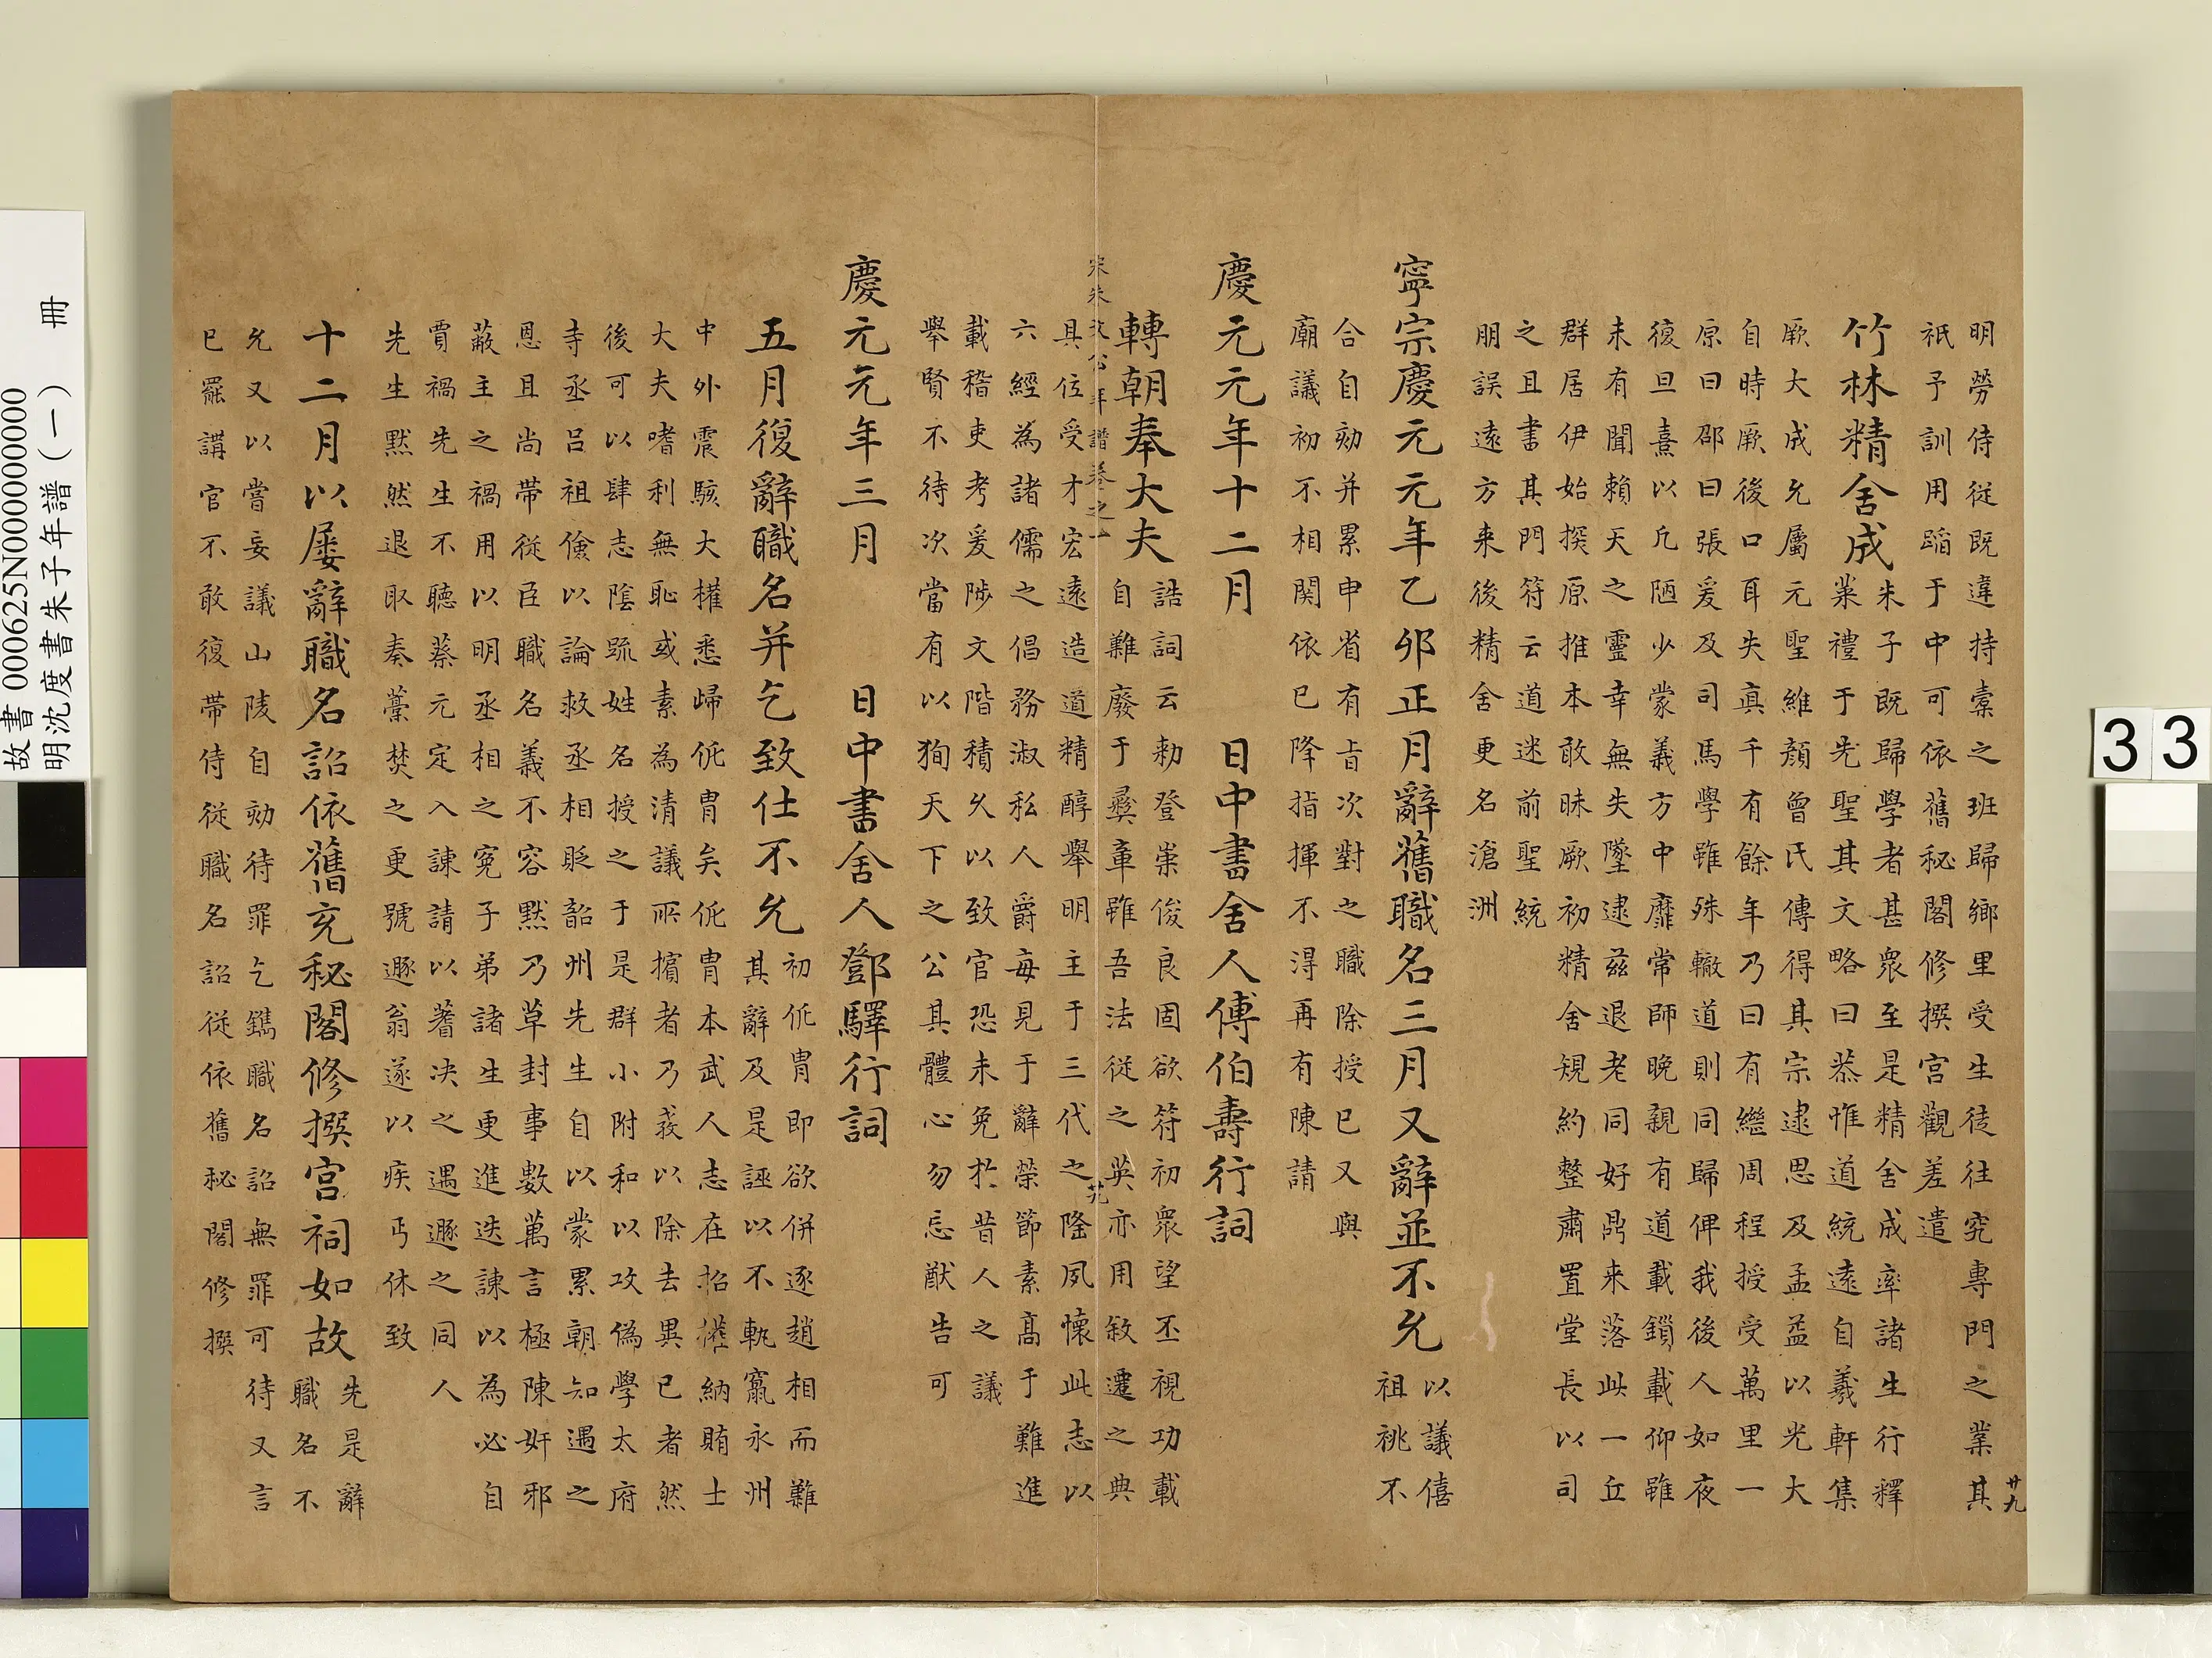 明勞侍從既違持橐之班歸鄉里受生徒往究專門之業其
祇予訓用蹈于中可依舊秘閣修撰宮觀差遣
竹林精舍成
朱子既歸學者甚衆至是精舍成率諸生行釋
菜禮于先聖其文略曰恭惟道統遠自羲軒集
厥大成允屬元聖維顔曾氏傳得其宗逮思及孟益以光大
自時厥後口耳失真千有餘年乃曰有繼周程授受萬里一
原曰邵曰張爰及司馬學雖殊轍道則同歸俾我後人如夜
復旦熹以凡陋少蒙義方中靡常師晚親有道載鑽載仰雖
未有聞賴天之靈幸無失墜逮茲退老同好鼎来落此一丘
群居伊始揆原推本敢昧厥初精舍規約整肅置堂長以司
之且書其門符云道迷前聖統
朋誤遠方来後精舍更名滄洲
寧宗慶元元年乙卯正月辭舊職名三月又辭並不允
以議僖
祖祧不
合自劾并累申省有旨次對之職除授已又與
廟議初不相関依已降指揮不淂再有陳請
慶元元年十二月 日中書舍人傅伯壽行詞
轉朝奉大夫
誥詞云勑登崇俊良固欲符初衆望丕視功載
自難廢于彛章雖吾法從之英亦用敘遷之典
宋朱文公年譜卷之一 廿九
具位受才宏遠造道精醇舉明主于三代之隆夙懷此志以
六經為諸儒之倡務淑私人爵每見于辭榮節素髙于難進
載稽吏考爰陟文階積久以致官恐未免扵昔人之議
舉賢不待次當有以狥天下之公其體心勿忘猷告可
慶元元年三月 日中書舍人鄧驛行詞
五月復辭職名并乞致仕不允
初侂胄即欲併逐趙相而難
其辭及是誣以不軌竄永州
中外震駭大權悉歸侂胄矣侂胄本武人志在招權納賄士
大夫嗜利無恥或素為清議所擯者乃莪以除去異已者然
後可以肆志陰疏姓名授之于是群小附和以攻偽學太府
寺丞吕祖儉以論救丞相貶韶州先生自以蒙累朝知遇之
恩且尚帶從臣職名義不容黙乃草封事數萬言極陳奸邪
蔽主之禍用以明丞相之寃子弟諸生更進迭諫以為必自
賈禍先生不聽蔡元定入諫請以蓍决之遇遯之同人
先生黙然退取奏藁焚之更號遯翁遂以疾丐休致
十二月以屢辭職名詔依舊充秘閣修撰宮祠如故
先是辭
職名不
允又以嘗妄議山陵自劾待罪乞鐫職名詔無罪可待又言
已罷講官不敢復帶侍從職名詔從依舊秘閣修撰
廿九
故書 000625N000000000
明沈度書朱子年譜(一) 冊
33